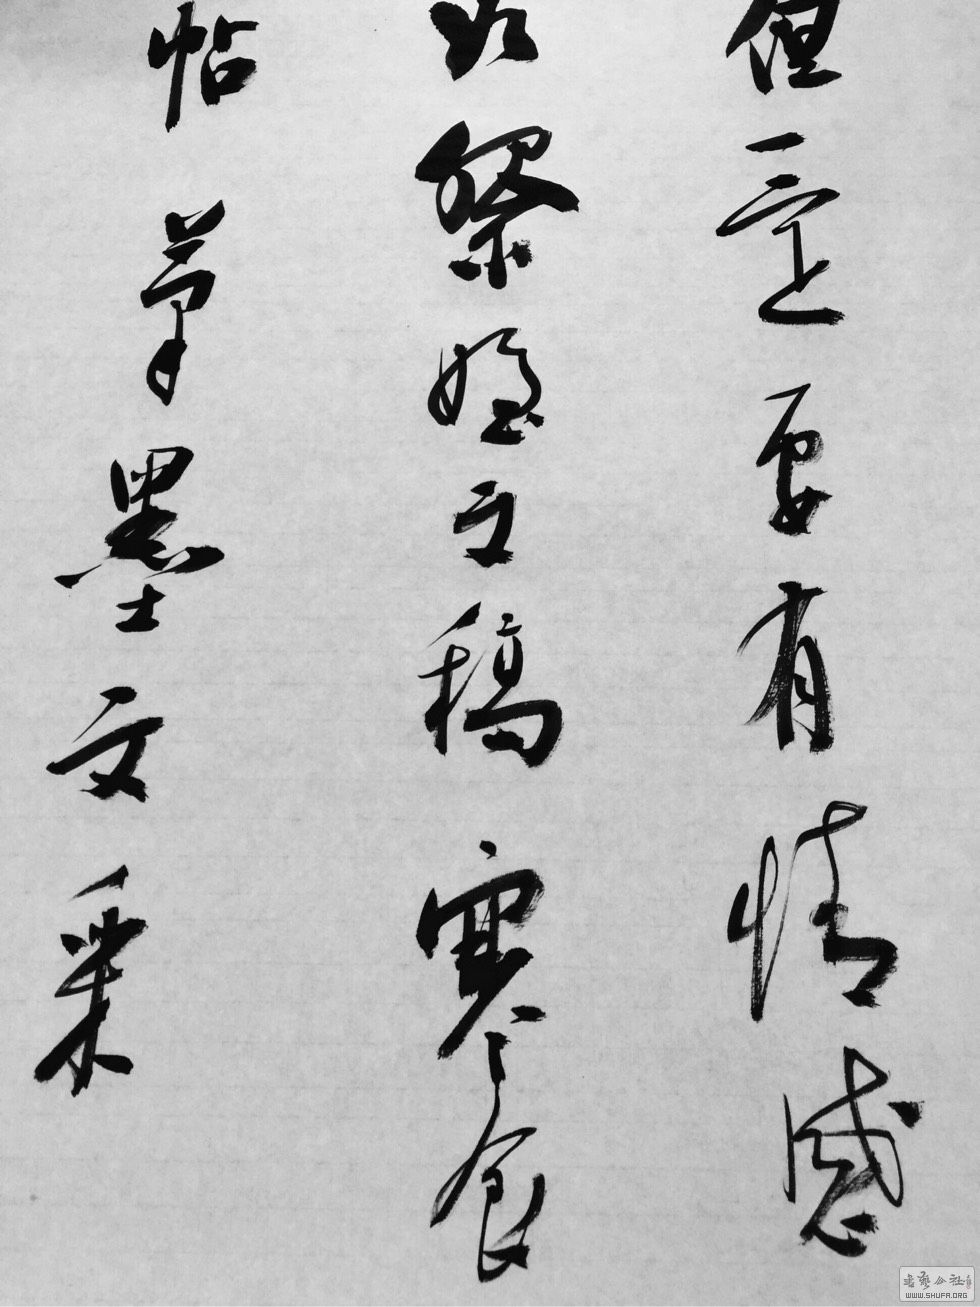 但一定要有情感
如祭姪文稿寒食
帖笔墨文采
书艺公社
WWW.SHUFA.ORG